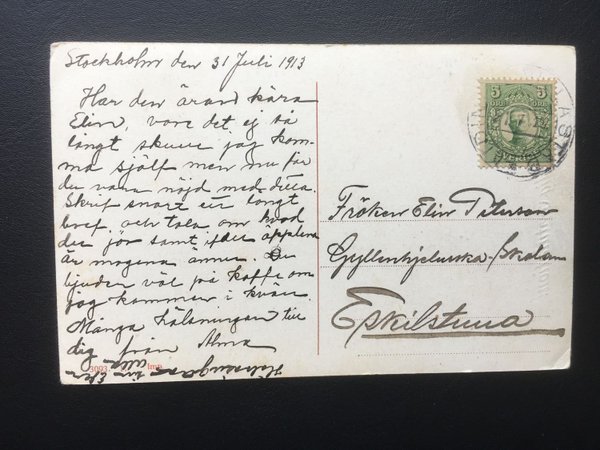 Stockholm den 31 Juli 1913
Har den äran kära
Elin, vore det ej så
långt skulle jag kom-
ma själf men nu får
du vara nöjd med detta.
Skrif snart ett långt
bref och tala om hvad
du gör samt ifall äpplena
är mogena ännu. Du
bjuder väl på kaffe om
jag kommer i kväll.
Många hälsningar till
dig från Alma
Hälsningar till alla
3003 Imp.
5 ÖRE 5 ÖRE
Fröken Elin Peterson
Gyllenhjelmska Skolan
Eskilstuna